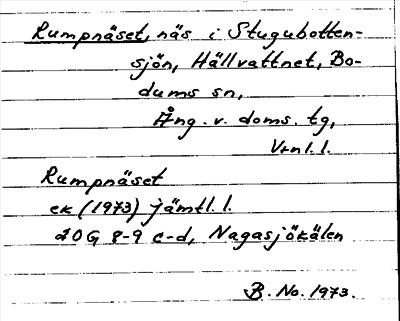 Rumpnäset, näs i Stugubotten-
sjön, Hällvattnet, Bo-
dums sn,
Ång. v. doms. tg,
Vtnl. l.
Rumpnäset
ek (1973) Jämtl. l.
20G 8-9 c-d, Nagasjökälen
B. No. 1973.